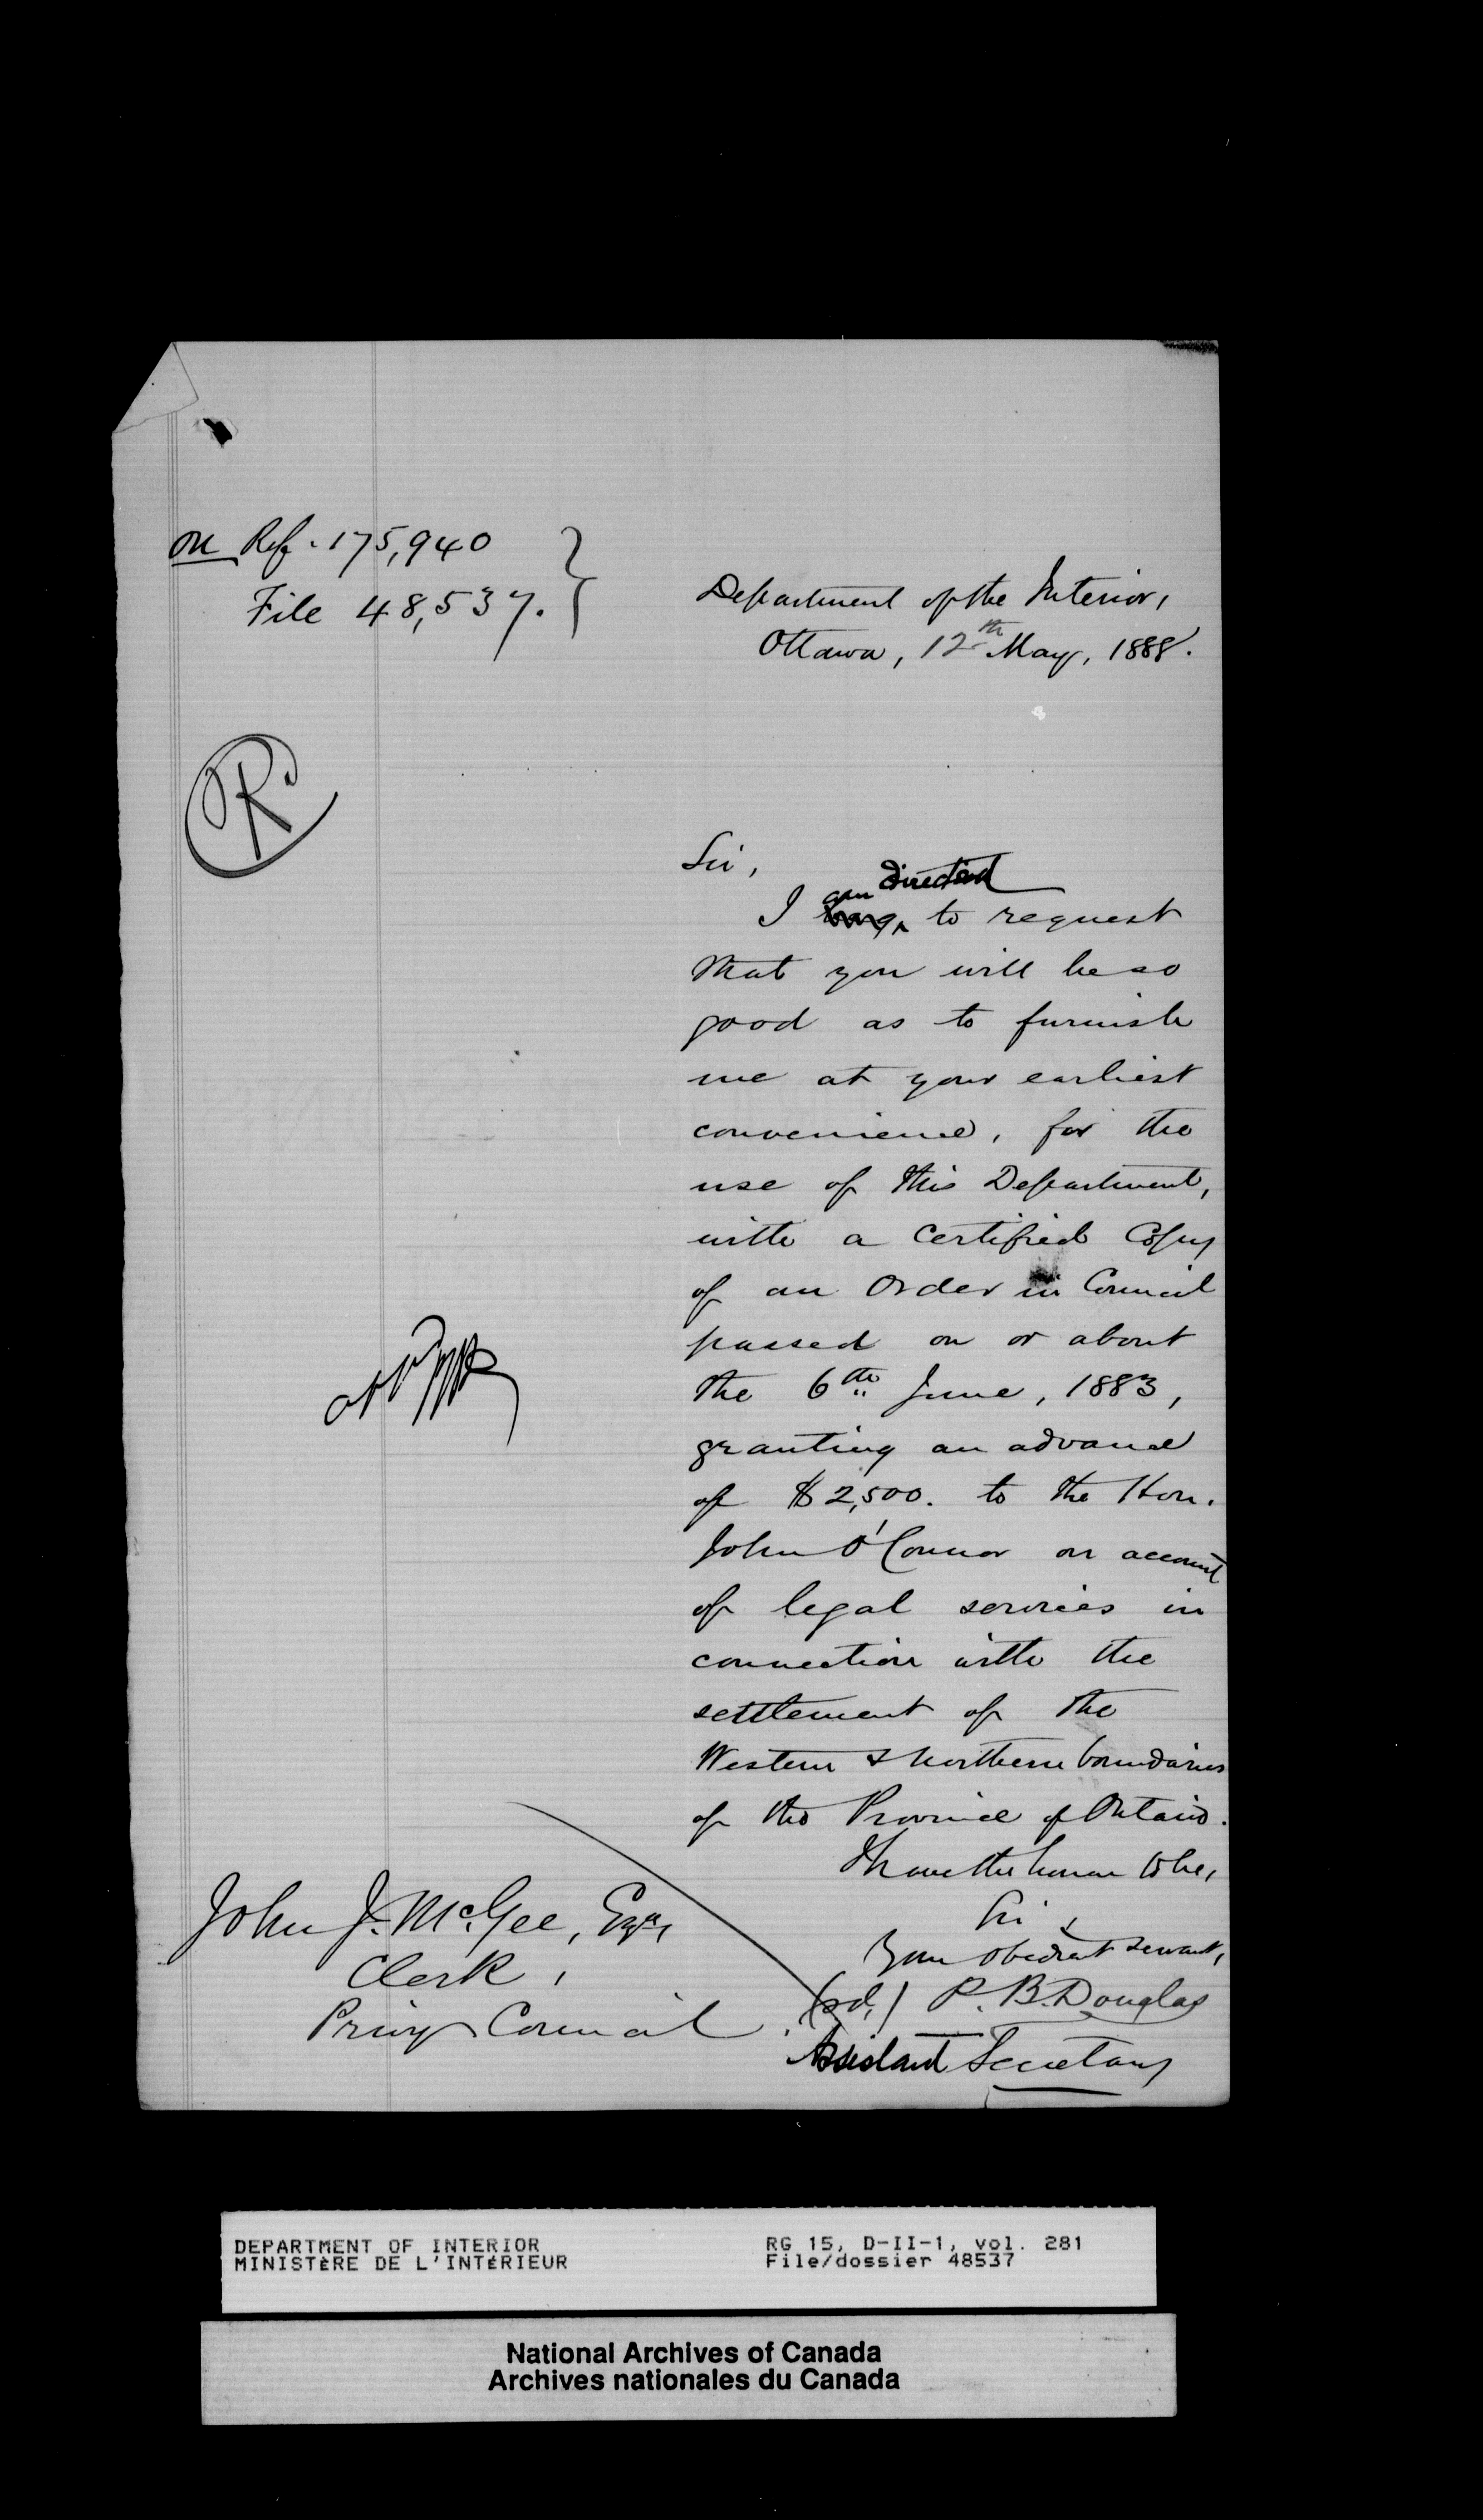 on Ref. 175,940
File 48,537.
Department of the Interior,
Ottawa, 12th May, 1888.
R
Sir,
am directed
I to request
that you will be so
good as to furnish
me at your earliest
convenience, for the
use of this Department,
with a Certified Copy
of an Order in Council
passed on or about
the 6th June, 1883,
granting an advance
of $2,500. to the Hon.
John O'Connor on account
of legal services in
connection with the
settlement of the
Western & Northern boundaries
of the Province of Ontario.
I have the honor to be,
Sir,
Your obedient servant,
(sd.) P. B. Douglas
Assistant Secretary
John J. McGee, Esqr,
Clerk,
Privy Council.
DEPARTMENT OF INTERIOR
MINISTÈRE DE L'INTÉRIEUR
RG 15, D-II-1, vol. 281
File/dossier 48537
National Archives of Canada
Archives nationales du Canada